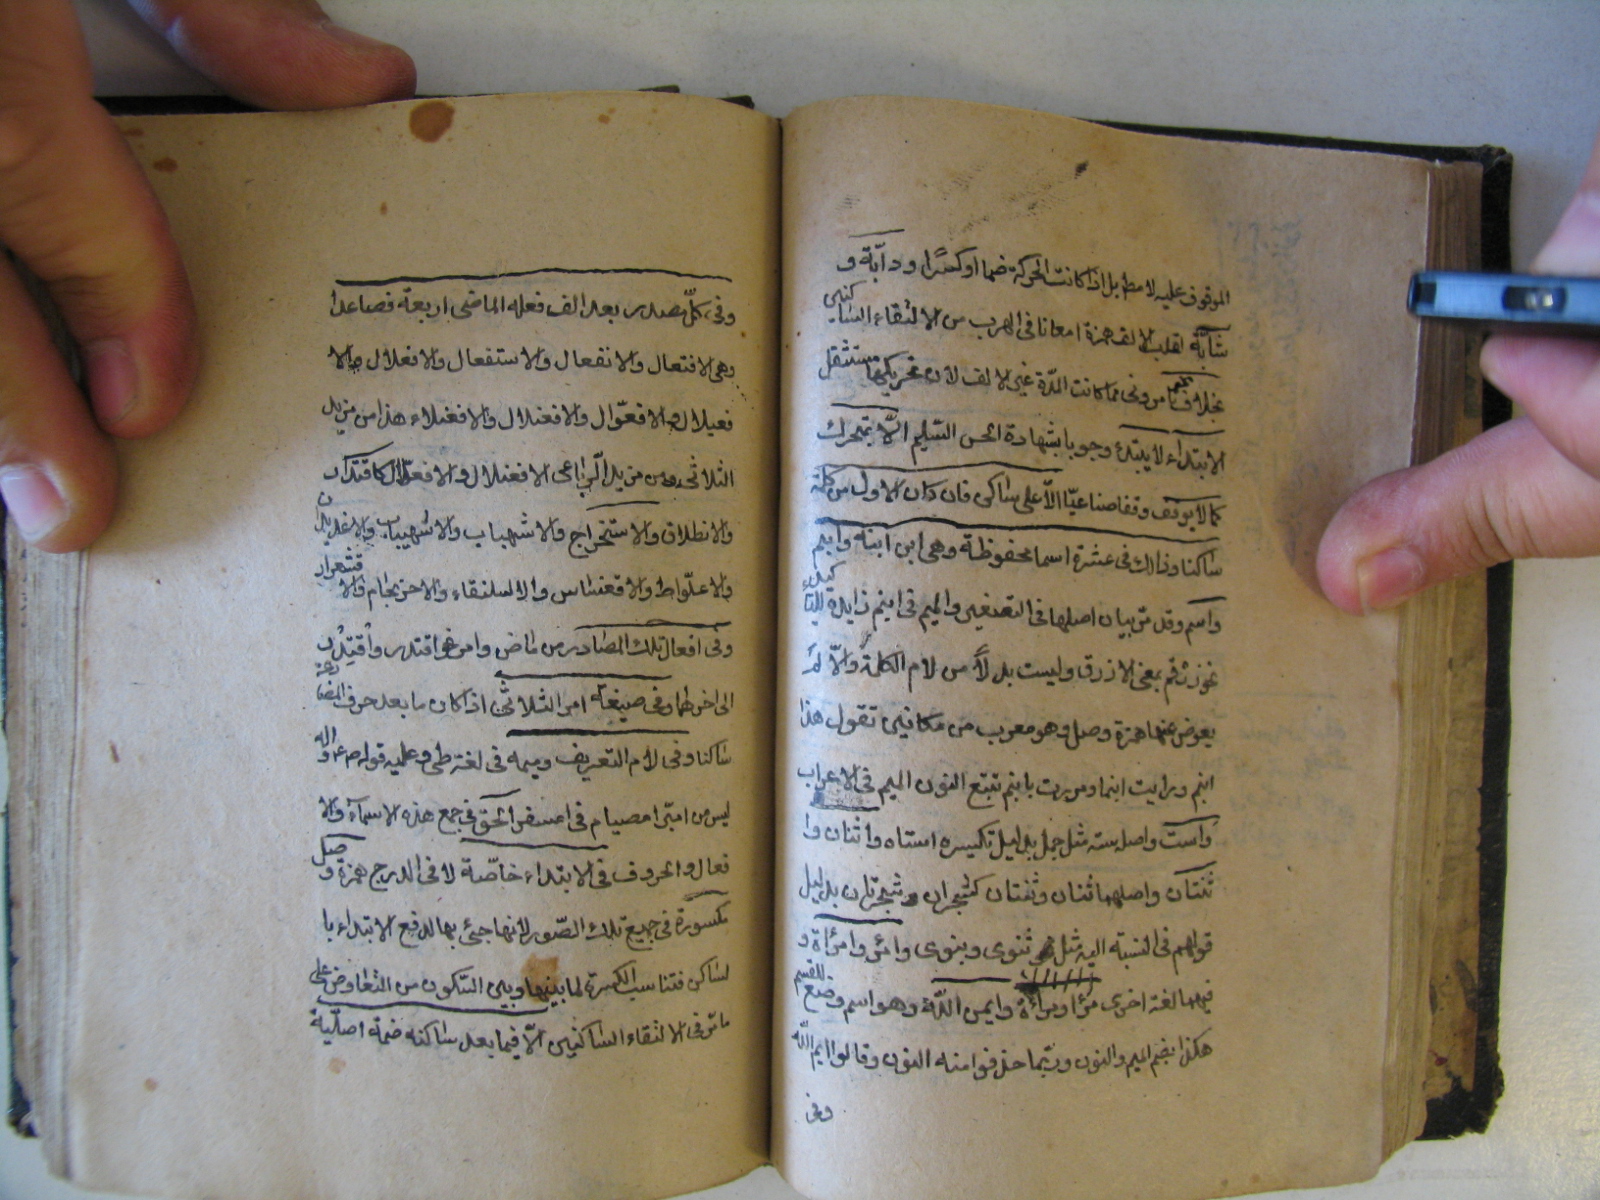 الموقوف عليه لا مط بل اذا كانت الحركة ضما او كسرا و دابّة و
شابّة لقلب الالف همزة امعانا فى الهرب من الالتقاء الساكنين
بخلاف تأمرونى مما كانت المدّة غير الالف لان تحريكها مستثقل
الابتداء لا يبتدئ وجوبا بشهادة الحس السليم الّا بمتحرك
كما لا يوقف وقفا صناعيّا الّا على ساكن فان كان الاول من كلمة
ساكنا وذالك فى عشرة اسما محفوظة وهى ابن ابنة وابنم
واسم وقد مرّ بيان اصلها فى التصغير والميم فى ابنم زايدة للتاكيد
نحو زرقم بمعنى الازرق وليست بدلاً من لام الكلمة والّا لم
يعوض عنها همزة وصل وهو معرب من مكانين تقول هذا
ابنم ورايت ابنما ومررت بابنم تتبع النون الميم فى الاعراب
واست واصله سته مثل جمل بدليل تكسيره استاه واثنان وا
ثنتان واصلهما ثنان وثنتان كشجران و شجرتان بدليل
قولهم فى النسبة اليه مثل ثنوى وبنوى وامرؤ وامرأة و
فيهما لغة اخرى مرأ ومرأة وايمن اللّه وهو اسم وضع للقسم
هكذا بضم الميم والنون وربّما حذفوا منه النون وقالوا ايم اللّه
وفى
وفى كلّ مصدر بعد الف فعله الماضى اربعة فصاعدا
وهى الافتعال والانفعال والاستفعال والافعلال والا
فعيلال والافعوّال والافعنلال والافعنلاء هذا من مزيد
الثلاثى ومن مزيد الرّباعى الافعنلال والافعلّال كاقتدار
والانطلاق والاستخراج والاشهباب والاشهيباب والاغديدان
والاعلّواط والاقعنساس والاسلنقاء والاحرنجام والاقشعرار
وفى افعال تلك المصادر من ماض وامر نحو اقتدر واقتدر
الى اخرهما وفى صيغة امر الثلاثى اذا كان ما بعد حرف المضارعة
ساكنا وفى لام التعريف وميمه فى لغة طى وعليه قوله
ليس من امبّر امصيام فى امسفر الحق فى جمع هذه الاسمآء والا
فعال والحروف فى الابتداء خاصّة لا فى الدرج همزة وصل
مكسورة فى جميع تلك الصّور لانها جئ بها لدفع الابتداء با
لساكن فتناسب الكسرة لما بينها وبين السّكون من التعاوض على
ما مرّ فى الالتقاء الساكنين الّا فيما بعد ساكنه ضمة اصليّة